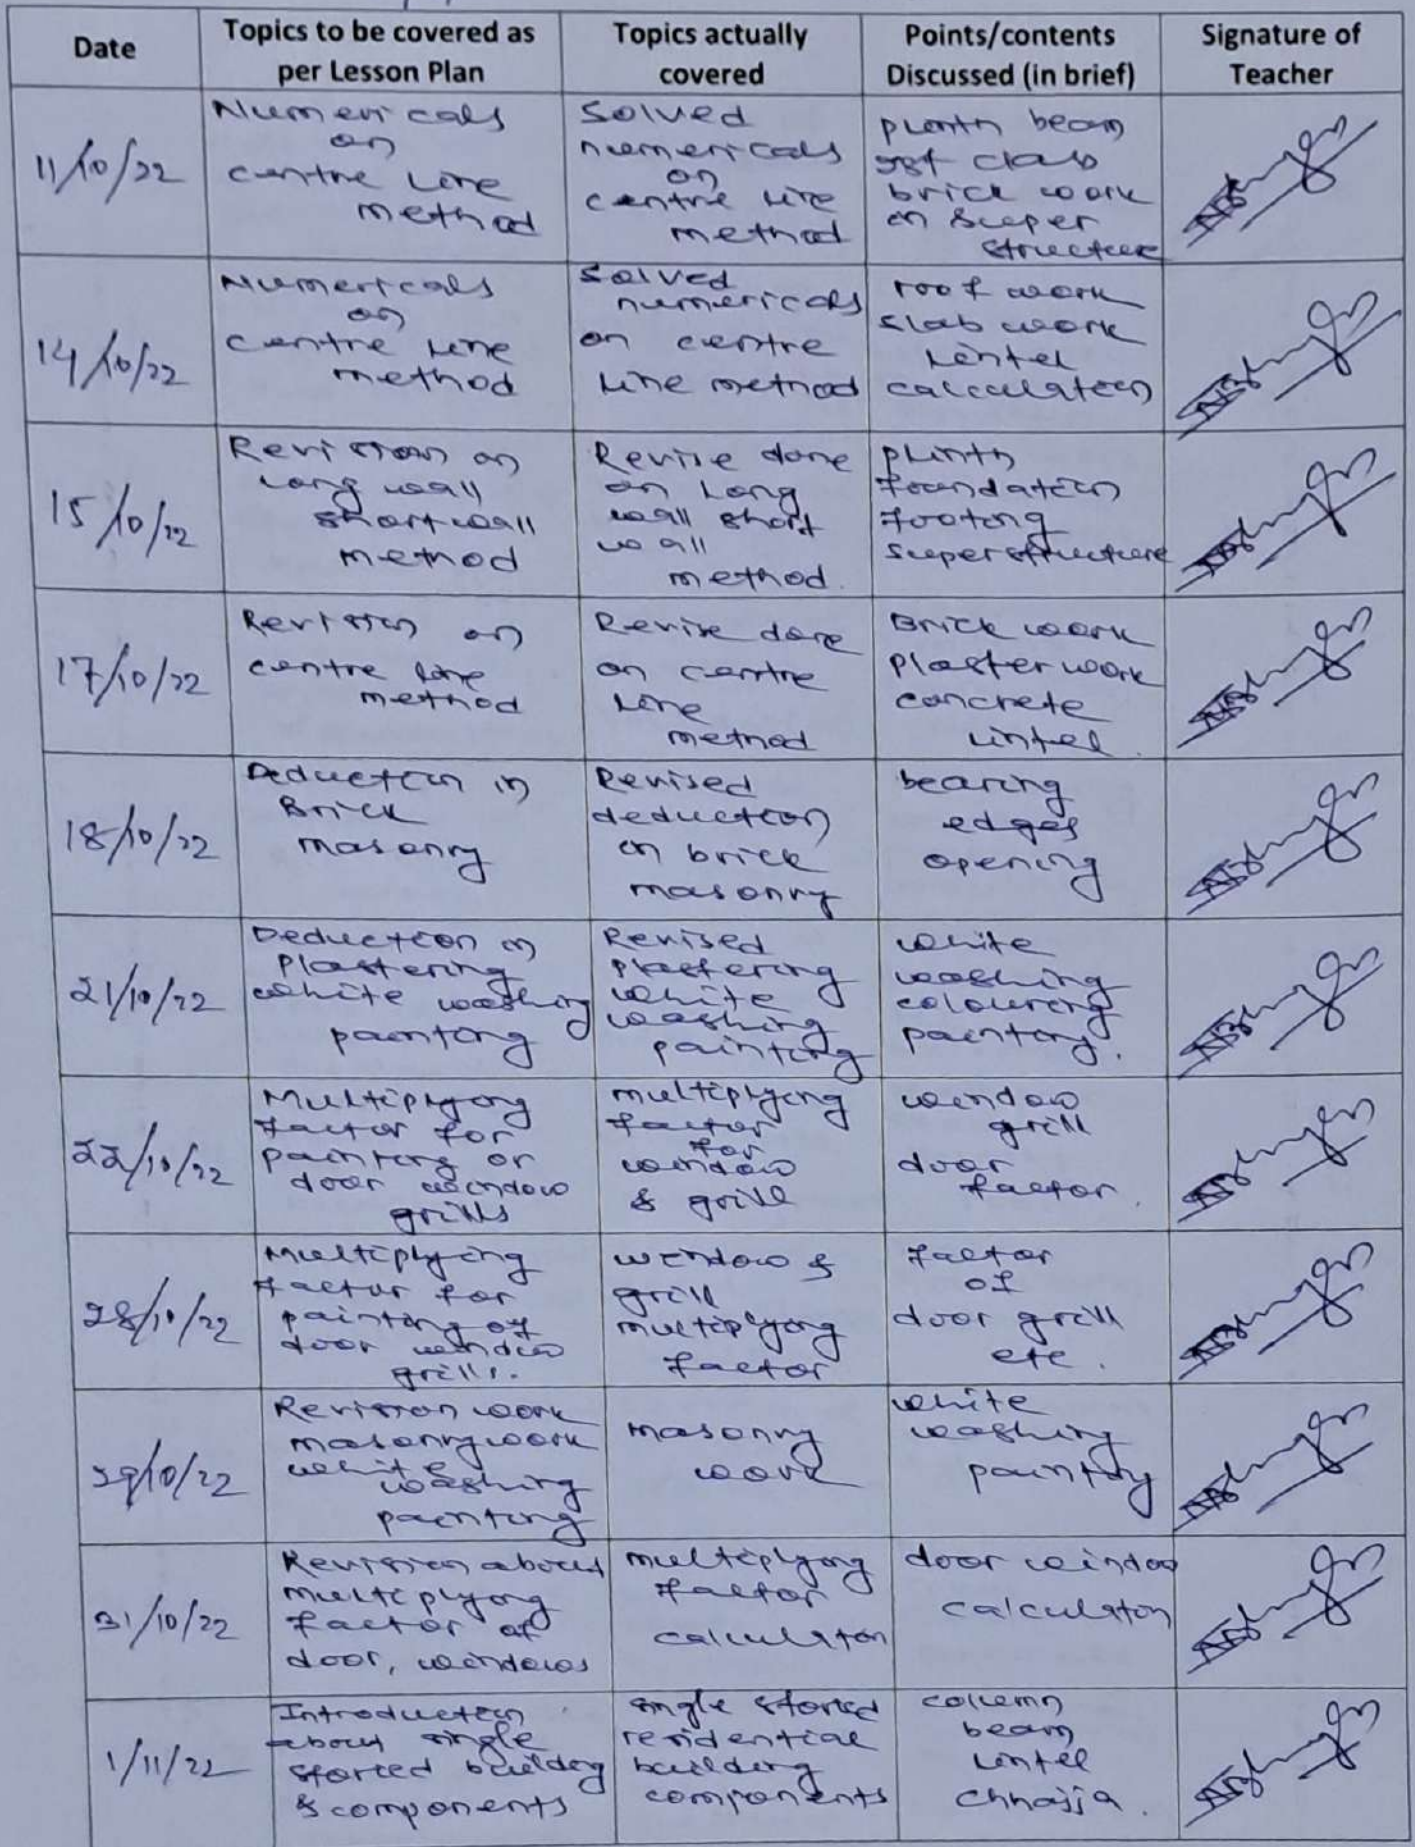 Date
Topics to be covered as
per Lesson Plan
Topics actually
covered
Points/contents
Discussed (in brief)
Signature of
Teacher
11/10/22
Numericals
on
centre line
method
Solved
numericals
on
centre line
method
plinth beam
1st class
brick work
in super
structure
14/10/22
Numericals
on
centre line
method
Solved
numericals
on centre
line method
roof work
slab work
Lintel
calculation
15/10/22
Revision on
long wall
short wall
method
Revise done
on Long
wall short
wall
method.
plinth
foundation
footing
superstructure
17/10/22
Revision on
centre line
method
Revise done
on centre
line
method
Brick work
plaster work
concrete
lintel.
18/10/22
Deduction in
Brick
masonry
Revised
deduction
in brick
masonry
bearing
edges
opening
21/10/22
Deduction in
Plastering
white washing
painting
Revised
plastering
white
washing
painting
white
washing
colouring
painting.
22/10/22
Multiplying
factor for
painting or
door window
grills
multiplying
factor
for
window
& grill
window
grill
door
factor.
28/10/22
Multiplying
factor for
painting of
door window
grills.
window &
grill
multiplying
factor
factor
of
door grill
etc.
29/10/22
Revision work
masonry work
white
washing
painting
masonry
work
white
washing
painting
31/10/22
Revision about
multiplying
factor of
door, windows
multiplying
factor
calculation
door window
calculation
1/11/22
Introduction
about single
storied building
& components
single storied
residential
building
components
column
beam
Lintel
chhajja.